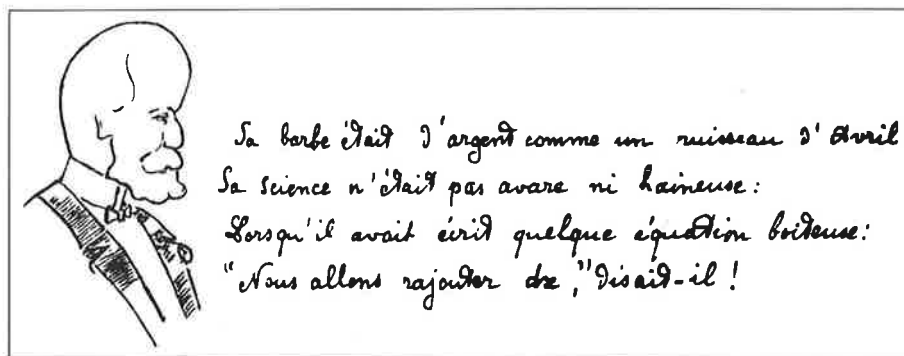 Sa barbe était d'argent comme un ruisseau d'Avril
Sa science n'était pas avare ni haineuse:
Lorsqu'il avait écrit quelque équation boiteuse:
"Nous allons rajouter dx," disait-il!